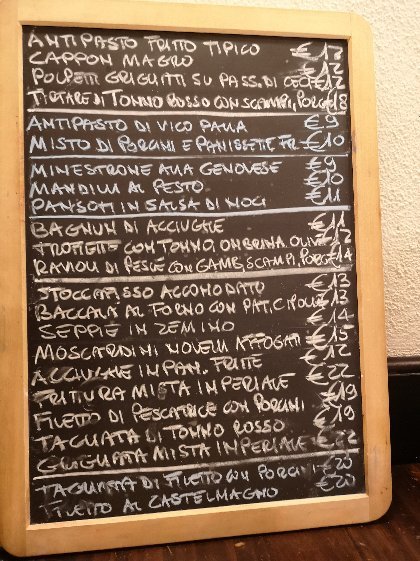 ANTIPASTO FRITTO TIPICO €16
CAPPON MAGRO €12
POLPETTI GRIGLIATI SU PASS. DI CECI €12
TARTARE DI TONNO ROSSO CON SCAMPI, PORC. €18
ANTIPASTO DI VICO PALLA €9
MISTO DI PORCINI E PANISSETTE FR. €10
MINESTRONE ALLA GENOVESE €9
MANDILLI AL PESTO €10
PANSOTI IN SALSA DI NOCI €11
BAGNUN DI ACCIUGHE €11
TROFIETTE CON TONNO, OMBRINA, OLIVE €12
RAVIOLI DI PESCE CON GAMB, SCAMPI, PORC. €14
STOCCAFISSO ACCOMODATO €13
BACCALÀ AL FORNO CON PAT, CIPOLLE €13
SEPPIE IN ZEMINO €14
MOSCARDINI NOVELLI AFFOGATI €15
ACCIUGHE IN PAN. FRITTE €12
FRITTURA MISTA IMPERIALE €22
FILETTO DI PESCATRICE CON PORCINI €19
TAGLIATA DI TONNO ROSSO €19
GRIGLIATA MISTA IMPERIALE €22
TAGLIATA DI FILETTO CON PORCINI €20
FILETTO AL CASTELMAGNO €20